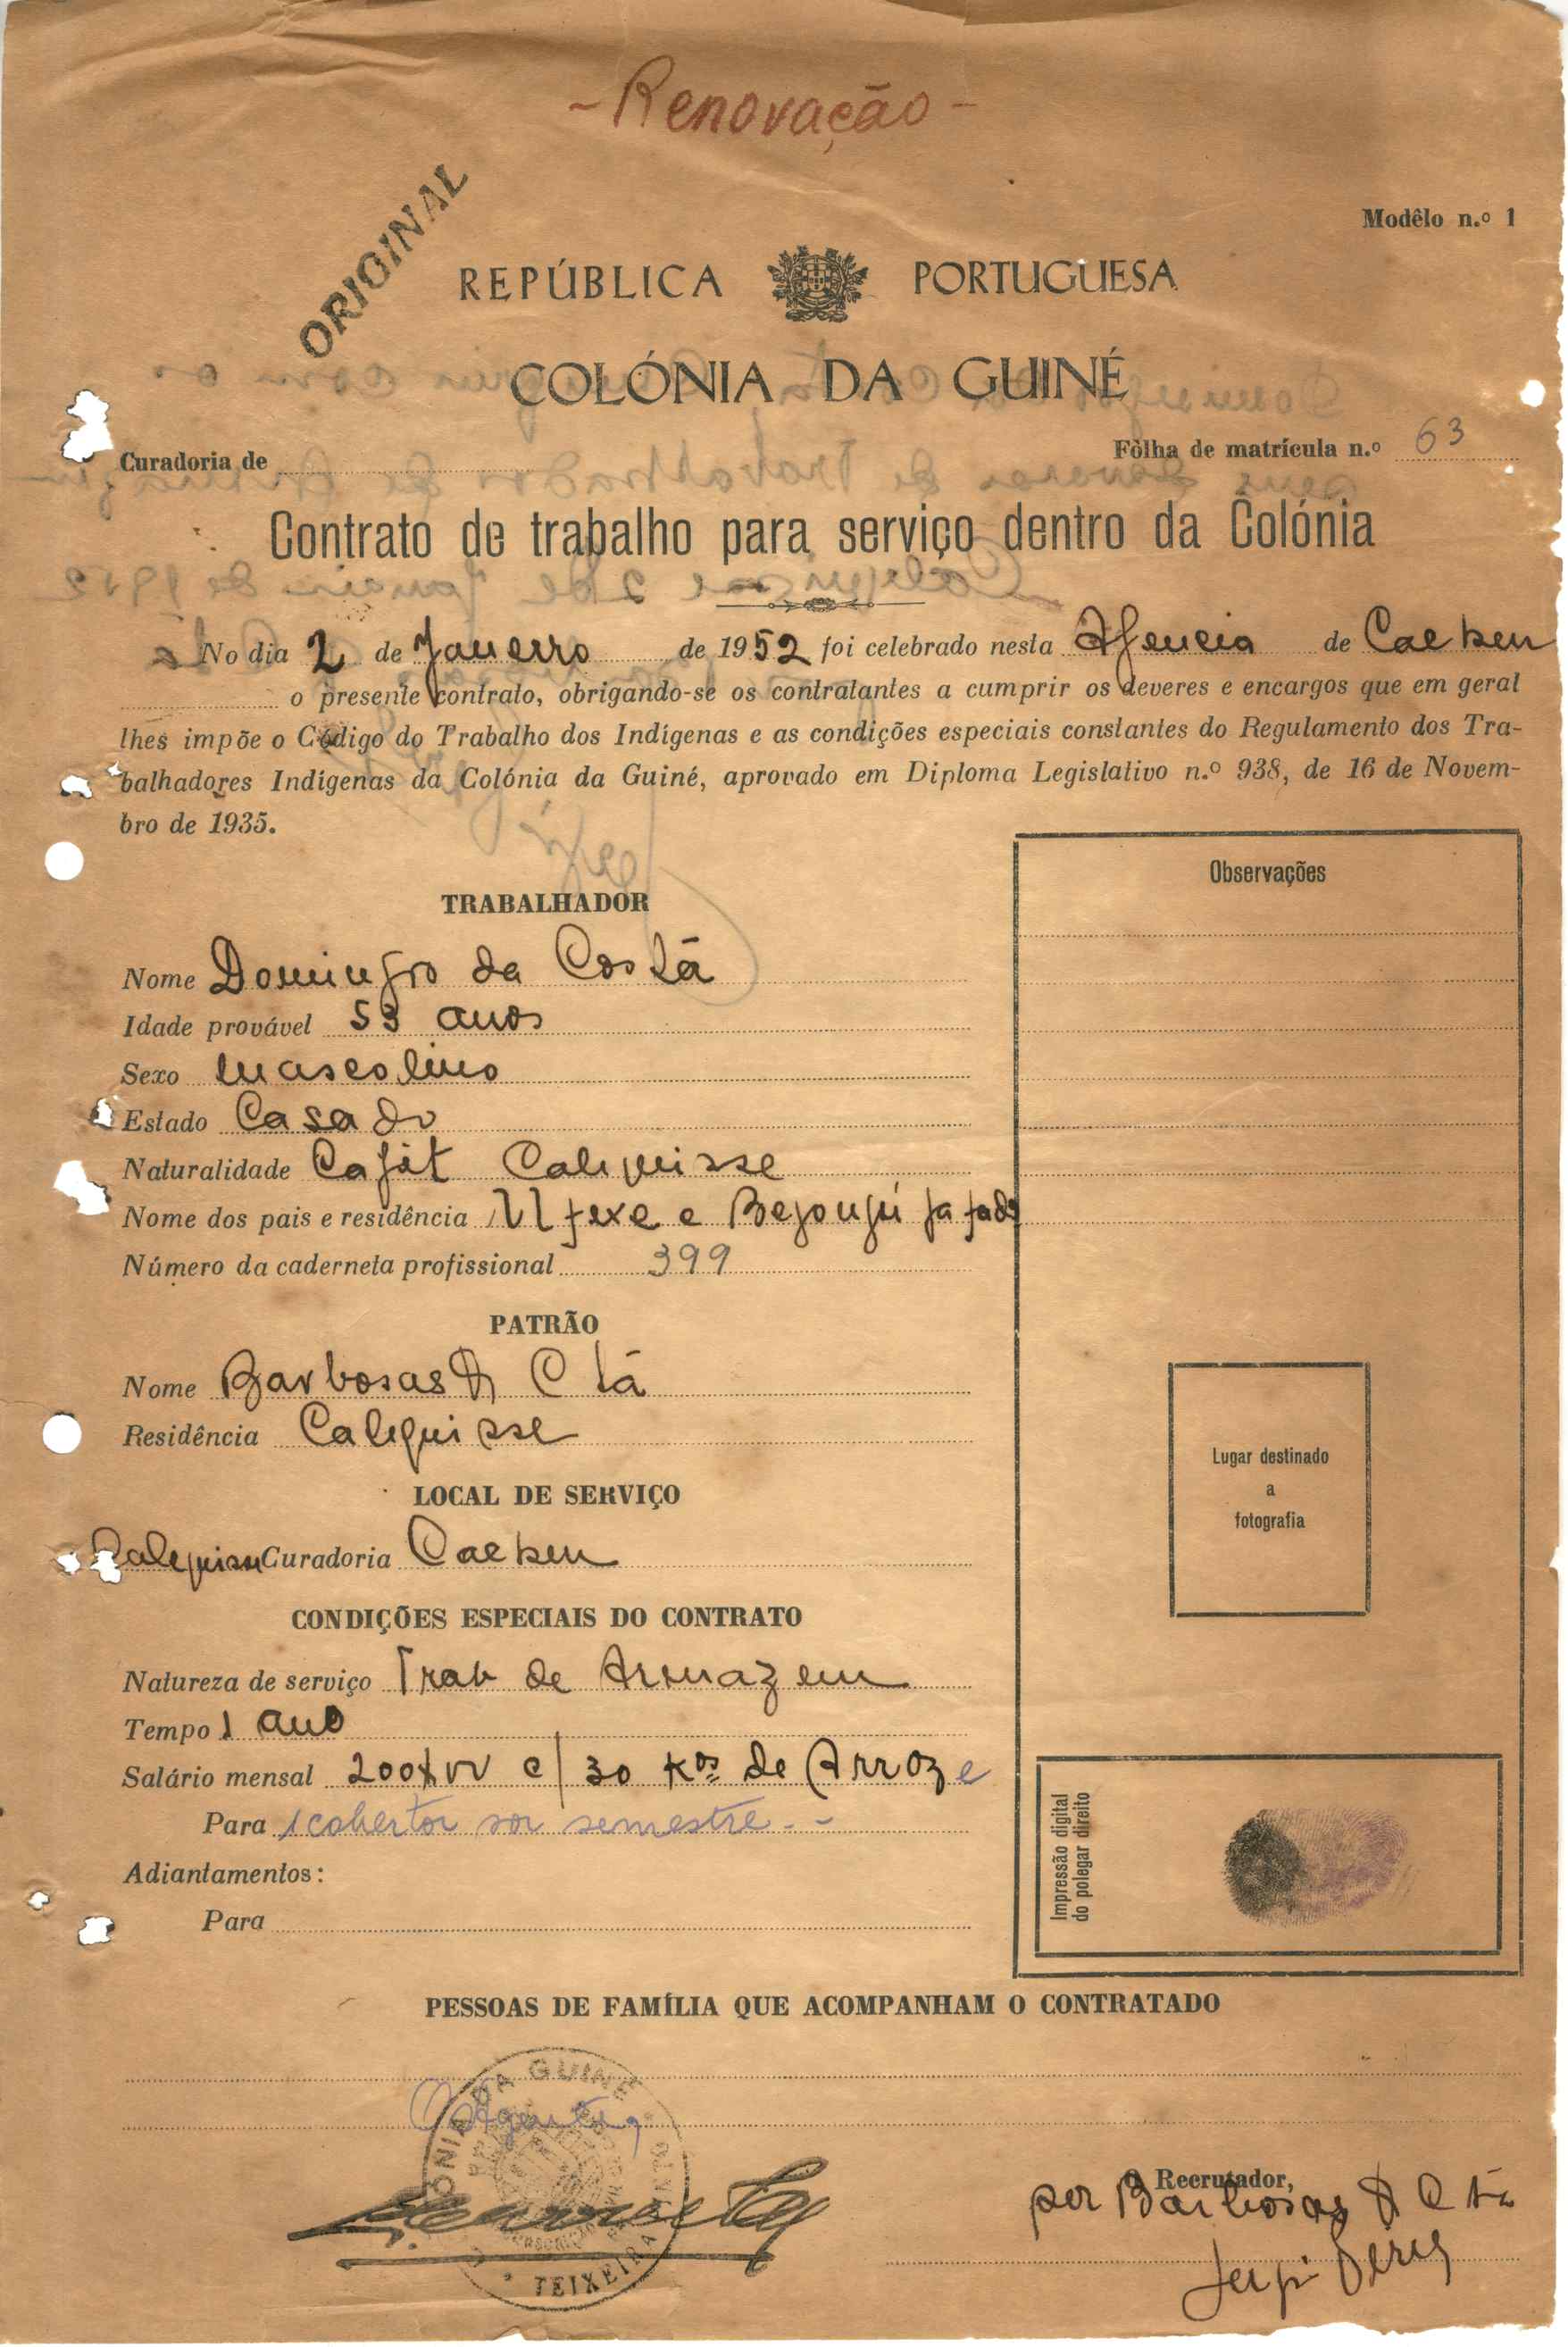 - Renovação -
ORIGINAL
Modêlo n.º 1
REPÚBLICA PORTUGUESA
COLÓNIA DA GUINÉ
Curadoria de
Fôlha de matrícula n.º 63
Contrato de trabalho para serviço dentro da Colónia
No dia 2 de Janeiro de 1952 foi celebrado nesta de
o presente contrato, obrigando-se os contratantes a cumprir os deveres e encargos que em geral
lhes impõe o Código do Trabalho dos Indígenas e as condições especiais constantes do Regulamento dos Tra-
balhadores Indígenas da Colónia da Guiné, aprovado em Diploma Legislativo n.º 938, de 16 de Novem-
bro de 1935.
Observações
TRABALHADOR
Nome Domingo da Costa
Idade provável 53 anos
Sexo mascolino
Estado Casado
Naturalidade Calequisse
Nome dos pais e residência
Número da caderneta profissional 399
PATRÃO
Nome Barbosas & Ctã
Residência Calequisse
Lugar destinado
a
fotografia
LOCAL DE SERVIÇO
Calequisse Curadoria
CONDIÇÕES ESPECIAIS DO CONTRATO
Natureza de serviço Trab de Armazem
Tempo 1 ano
Salário mensal c/ 30 Kos de Arroz e
Para 1 cobertor por semestre. -
Adiantamentos:
Para
Impressão digital
do polegar direito
PESSOAS DE FAMÍLIA QUE ACOMPANHAM O CONTRATADO
DA GUINÉ
TEIXEIRA
O Recrutador,
por Barbosas & Ctã